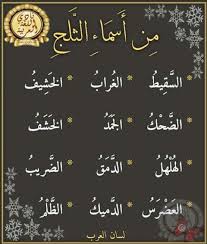 مِن أَسْمَاءِ الثَّلْجِ
* السَّقِيطُ * الغُرابُ * الخَشِيفُ
* الضَّحْكُ * الجَمَدُ * الخَشَفُ
* الهُلْهُلُ * الدَّمَقُ * الضَّرِيبُ
* العَضْرَسُ * الدَّمِيكُ * الظَّلْمُ
لسان العرب